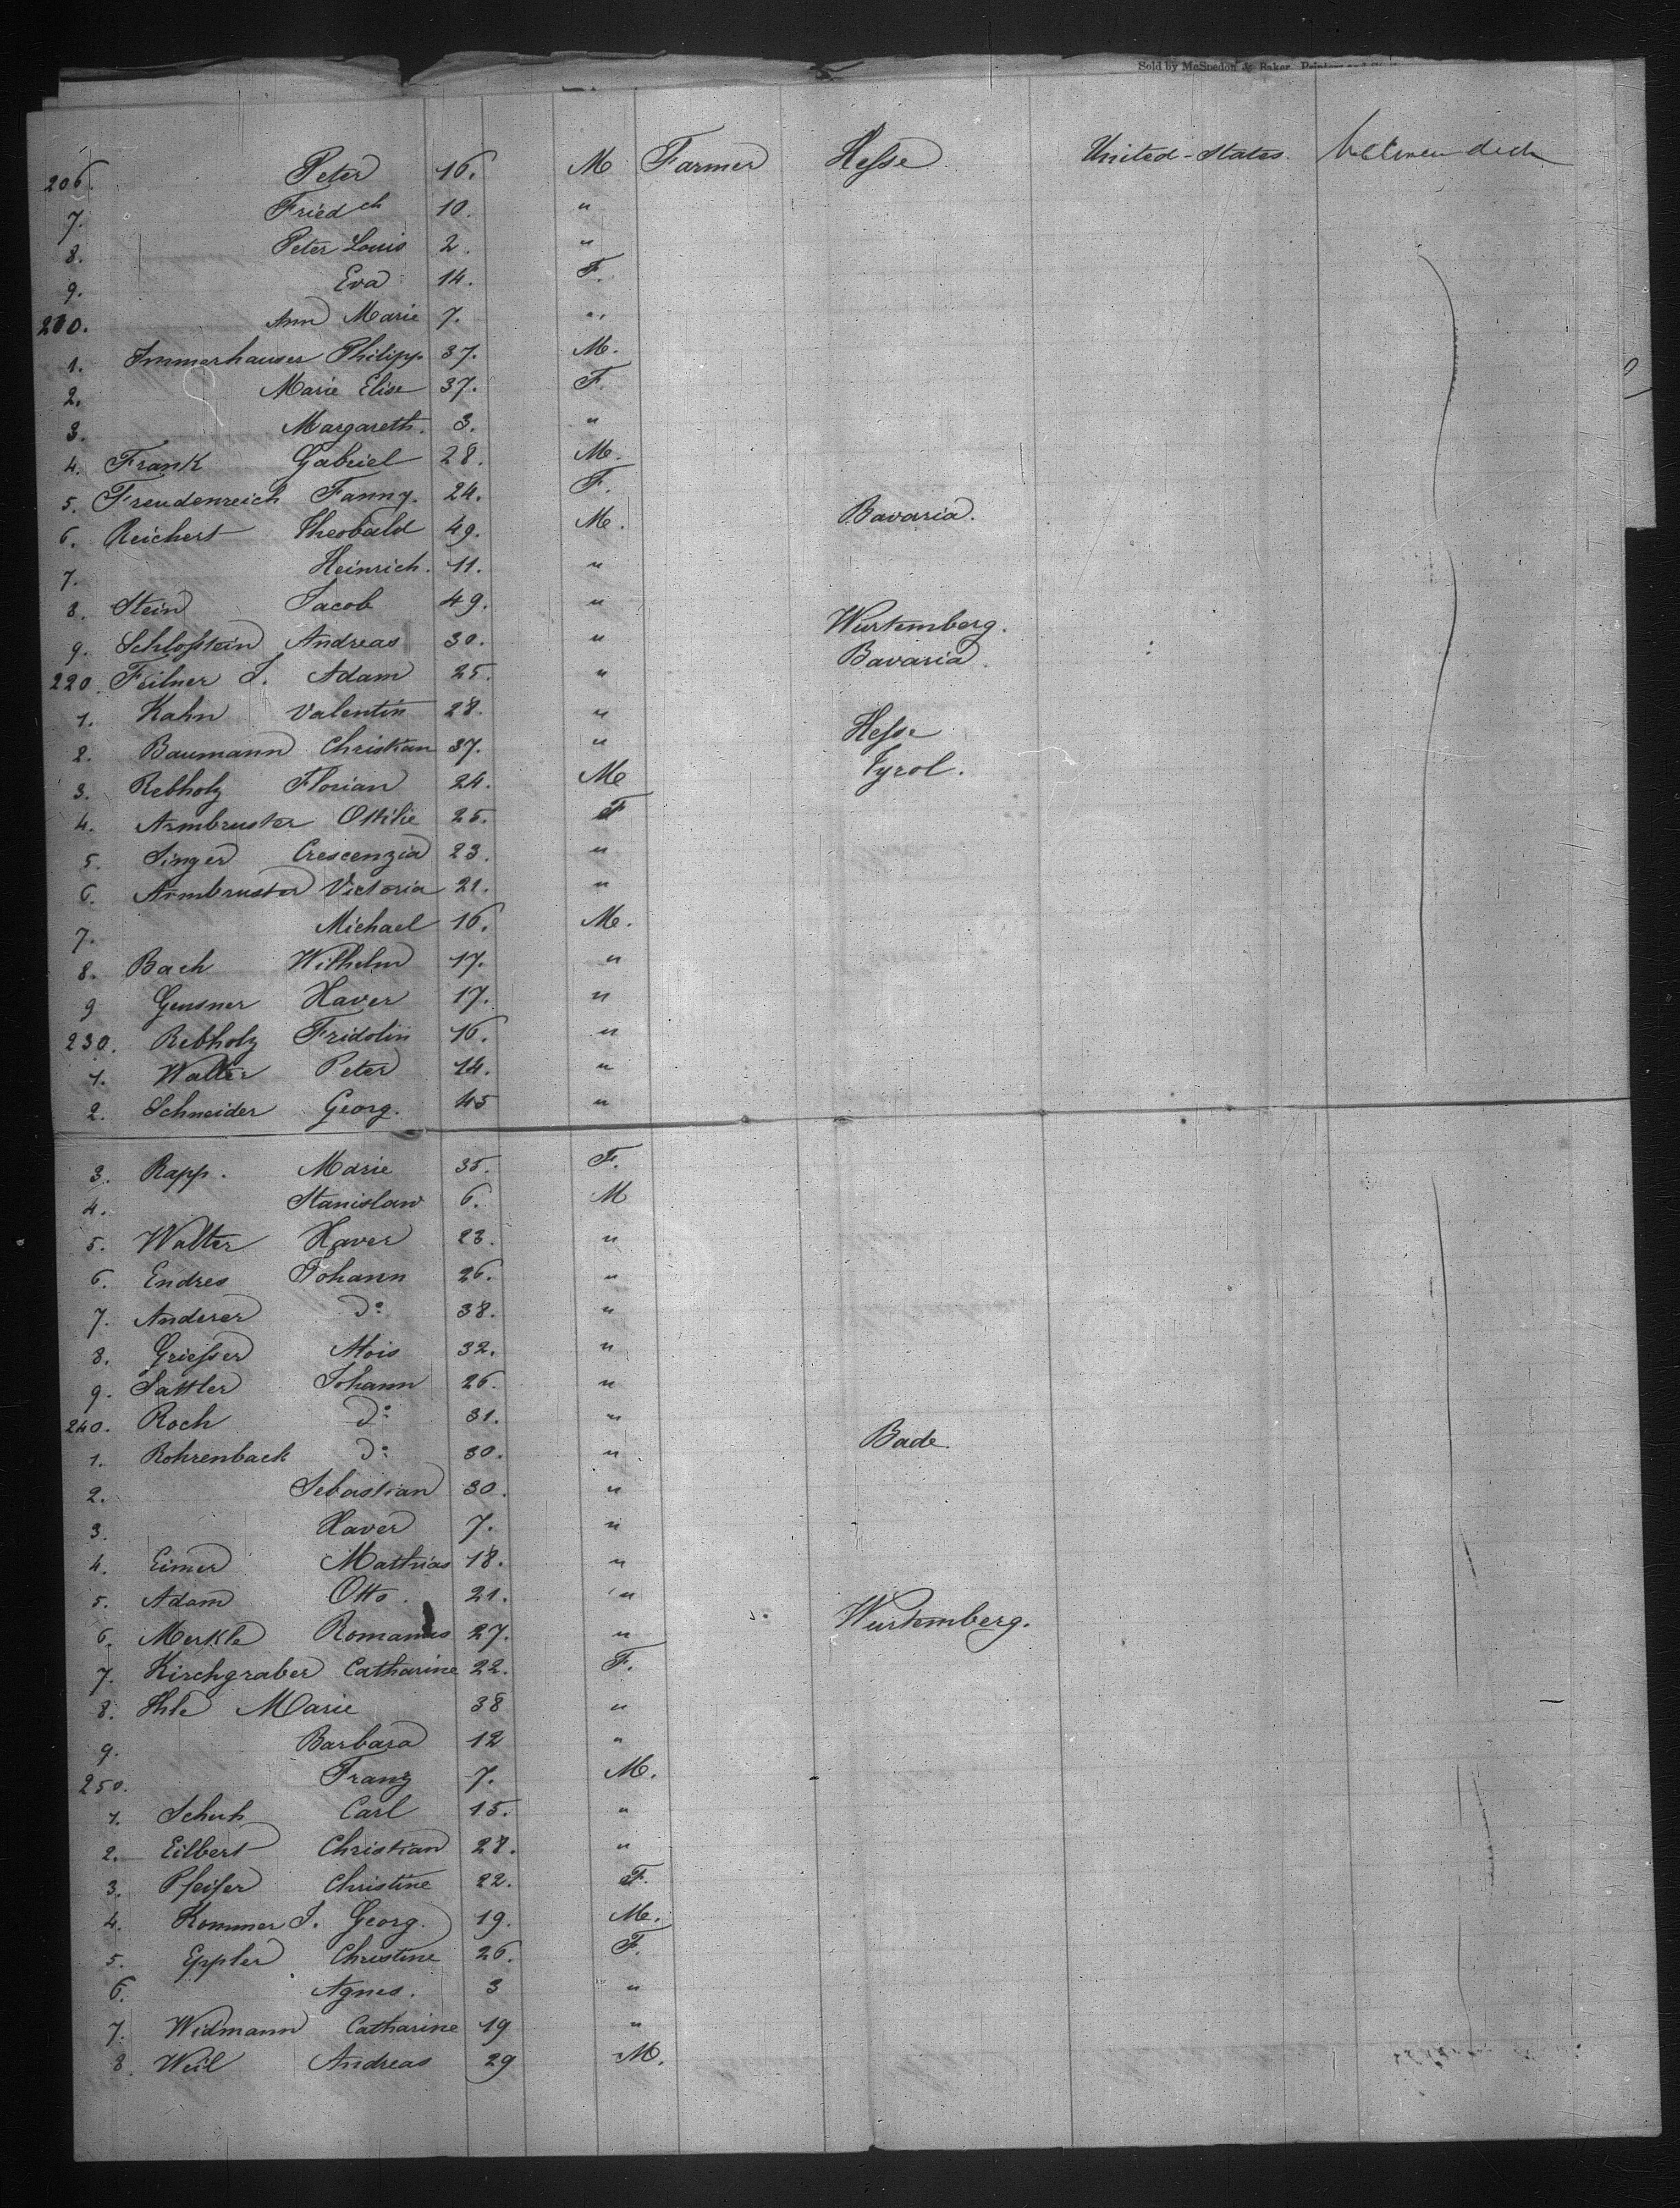 Sold by McSpedon & Baker, Printers and
206. Peter 16. M Farmer Hesse United-States. between deck
7. Friedch 10. "
8. Peter Louis 2. "
9. Eva 14. F.
210. Ann Marie 7. "
1. Immerhauser Philipp 37. M.
2. Marie Elise 37. F.
3. Margareth. 3. "
4. Frank Gabriel 28. M.
5. Freudenreich Fanny. 24. F.
6. Reichert Theobald 49. M. Bavaria.
7. Heinrich. 11. "
8. Stein Jacob 49. "
9. Schloßtein Andreas 30. " Wurtemberg.
220. Feilner J. Adam 25. " Bavaria.
1. Kahn Valentin 28. "
2. Baumann Christian 37. " Hesse
3. Rebholz Florian 24. M Tyrol.
4. Armbruster Ottilie 25. F
5. Singer Crescenzia 23. "
6. Armbruster Victoria 21. "
7. Michael 16. M.
8. Bach Wilhelm 17. "
9 Geusner Xaver 17. "
230. Rebholz Fridolin 16. "
1. Walter Peter 14. "
2. Schneider Georg. 45 "
3. Rapp. Marie 35. F.
4. Stanislaw 6. M
5. Walter Xaver 23. "
6. Endres Johann 26. "
7. Anderer do 38. "
8. Grießer Alois 32. "
9. Sattler Johann 26. "
240. Roch do 31. "
1. Rohrenback do 30. " Bade.
2. Sebastian 30. "
3. Xaver 7. "
4. Eimer Mathias 18. "
5. Adam Otto. 21. "
6. Merkle Romanus 27. " Wurtemberg.
7. Kirchgraber Catharine 22. F.
8. Ihle Marie 38 "
9. Barbara 12 "
250. Franz 7. M.
1. Schuh Carl 15. "
2. Eilbert Christian 28. "
3. Pfeifer Christine 22. F.
4. Kommer J. Georg. 19. M.
5. Eppler Christine 26. F.
6. Agnes. 3 "
7. Widmann Catharine 19 "
8. Weil Andreas 29 M.